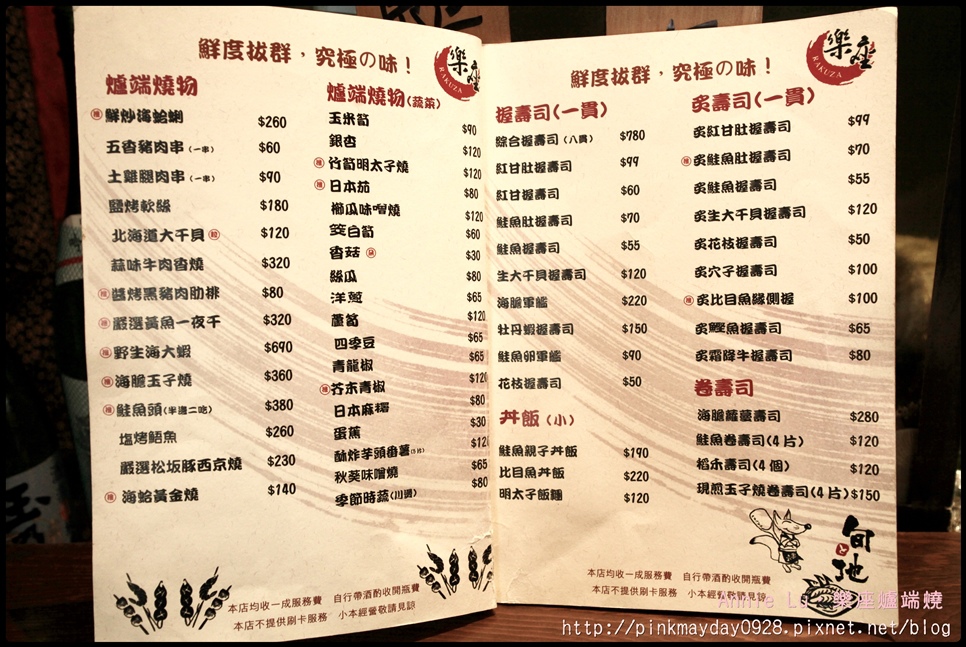 鮮度拔群，究極の味！
樂座
RAKUZA
爐端燒物
推 鮮炒海蛤蜊 $260
五香豬肉串(一串) $60
土雞腿肉串(一串) $90
鹽烤軟絲 $180
北海道大干貝 $120
蒜味牛肉香燒 $320
推 醬烤黑豬肉肋排 $80
推 嚴選黃魚一夜干 $320
推 野生海大蝦 $690
推 海膽玉子燒 $360
推 鮭魚頭(半邊二吃) $380
塩烤鯃魚 $260
嚴選松坂豚西京燒 $230
推 海蛤黃金燒 $140
爐端燒物(蔬菜)
玉米筍 $90
銀杏 $120
推 竹筍明太子燒 $120
推 日本茄 $80
櫛瓜味噌燒 $120
筊白筍 $60
香菇 $30
絲瓜 $80
洋蔥 $65
蘆筍 $120
四季豆 $65
青龍椒 $65
推 芥末青椒 $120
日本麻糬 $80
蛋蕉 $30
酥炸芋頭番薯 $12
秋葵味噌燒 $65
季節時蔬(川燙) $80
本店均收一成服務費 自行帶酒酌收開瓶費
本店不提供刷卡服務 小本經營敬請見諒
鮮度拔群，究極の味！
樂座
RAKUZA
握壽司(一貫)
綜合握壽司(八貫) $780
紅甘肚握壽司 $99
紅甘握壽司 $60
鮭魚肚握壽司 $70
鮭魚握壽司 $55
生大干貝握壽司 $120
海膽軍艦 $220
牡丹蝦握壽司 $150
鮭魚卵軍艦 $90
花枝握壽司 $50
丼飯(小)
鮭魚親子丼飯 $190
比目魚丼飯 $220
明太子飯糰 $120
炙壽司(一貫)
炙紅甘肚握壽司 $99
推 炙鮭魚肚握壽司 $70
炙鮭魚握壽司 $55
炙生大干貝握壽司 $120
炙花枝握壽司 $50
炙穴子握壽司 $100
推 炙比目魚緣側握 $100
炙鰹魚握壽司 $65
炙霜降牛握壽司 $80
卷壽司
海膽蘿蔓壽司 $280
鮭魚卷壽司(4片) $120
稻禾壽司(4個) $120
現煎玉子燒卷壽司(4片) $150
旬と地
本店均收一成服務費 自行帶酒酌收開瓶費
本店不提供刷卡服務 小本經營敬請見諒
Annie Lu 樂座爐端燒
http://pinkmayday0928.pixnet.net/blog